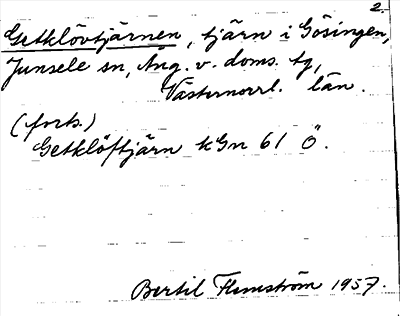 2.
Getklövtjärnen, tjärn i Gösingen,
Junsele sn, Ång. v. doms. tg,
Västernorrl. län.
(forts.)
Getklöftjärn kGn 61 Ö.
Bertil Flemström 1957.